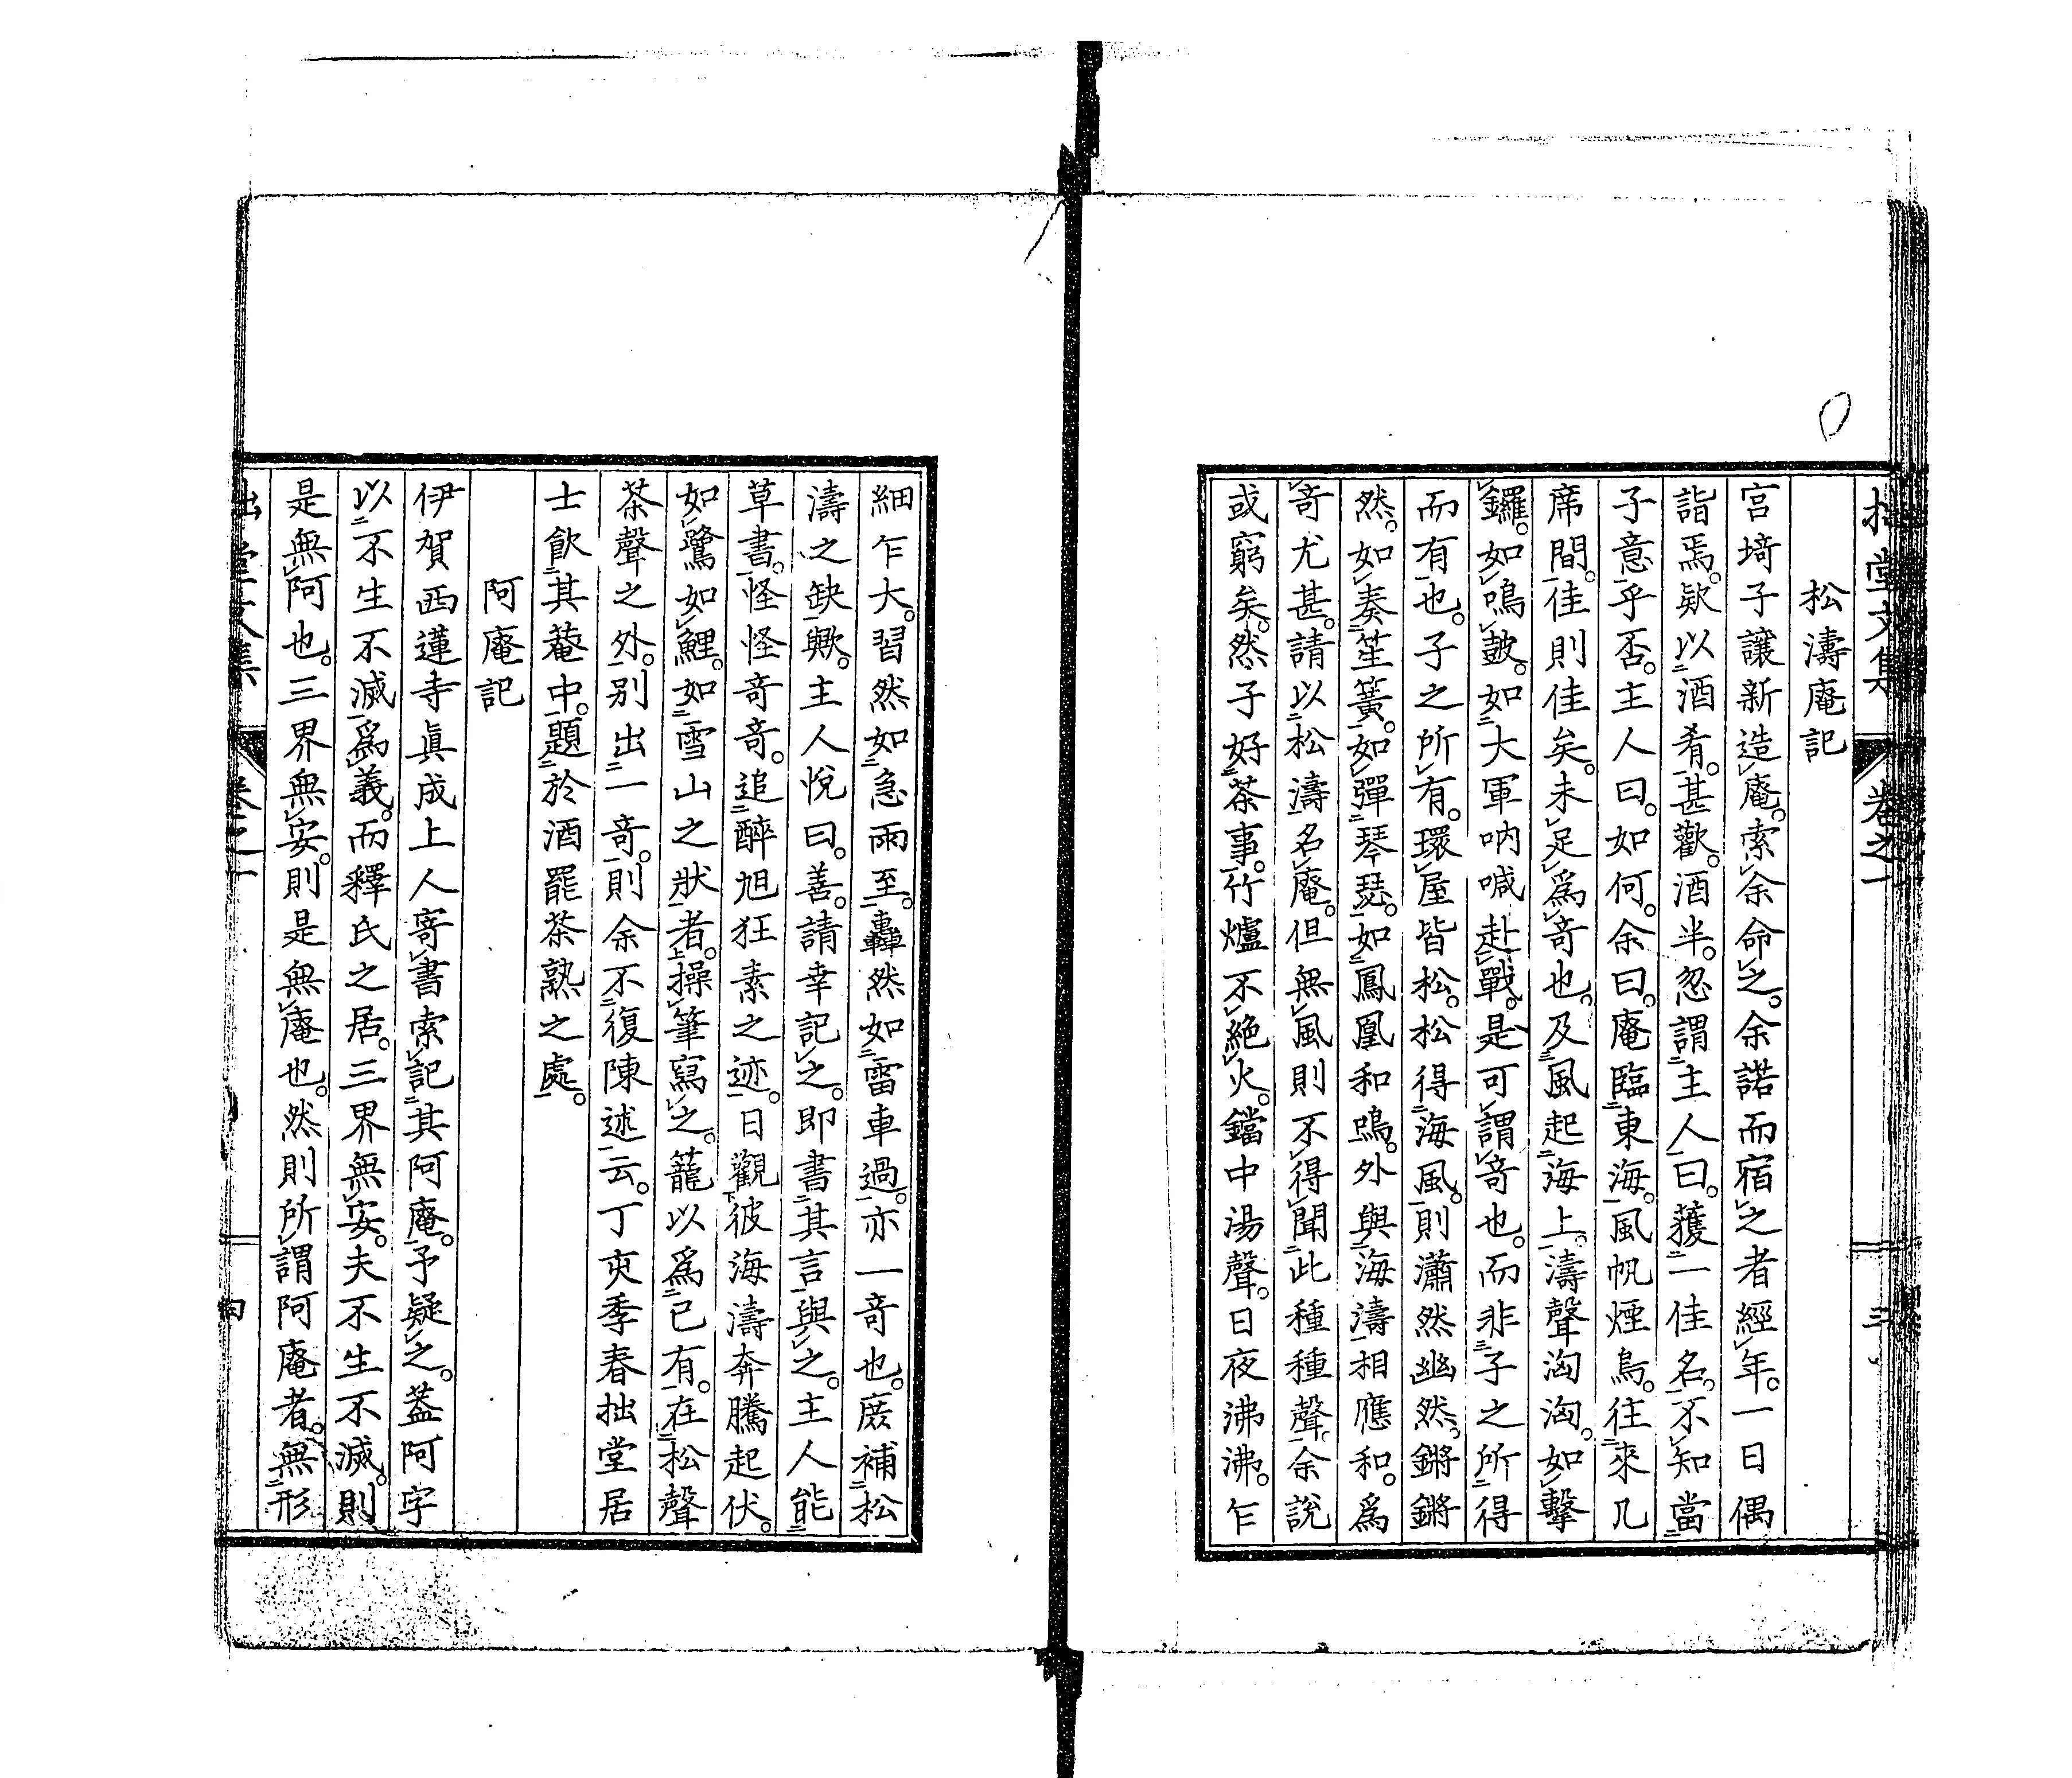 拙堂文集 卷之一 三
松濤庵記
宮埼子讓新造庵。索余命之。余諾而宿之者經年。一日偶
詣焉。欵以酒肴。甚歡。酒半。忽謂主人曰。獲一佳名。不知當
子意乎否。主人曰。如何。余曰。庵臨東海。風帆煙鳥。往來几
席間。佳則佳矣。未足爲竒也。及風起海上。濤聲洶洶。如擊
鑼。如鳴皷。如大軍吶喊赴戰。是可謂竒也。而非子之所得
而有也。子之所有。環屋皆松。松得海風。則瀟然幽然。鏘鏘
然。如奏笙簧。如彈琴瑟。如鳳凰和鳴。外與海濤相應和。爲
竒尤甚。請以松濤名庵。但無風則不得聞此種種聲。余說
或窮矣。然子好茶事。竹爐不絶火。鐺中湯聲。日夜沸沸。乍
細乍大。習然如急雨至。轟然如雷車過。亦一竒也。庶補松
濤之缺歟。主人悅曰。善。請幸記之。即書其言與之。主人能
草書。怪怪竒竒。追醉旭狂素之迹。日觀彼海濤奔騰起伏。
如鷺如鯉。如雪山之狀者。操筆寫之。籠以爲己有。在松聲
茶聲之外。別出一竒。則余不復陳述云。丁亥季春拙堂居
士飮其菴中。題於酒罷茶熟之處。
阿庵記
伊賀西蓮寺眞成上人寄書索記其阿庵。予疑之。葢阿字
以不生不滅爲義。而釋氏之居。三界無安。夫不生不滅。則
是無阿也。三界無安。則是無庵也。然則所謂阿庵者。無形
拙堂文集 卷之一 四